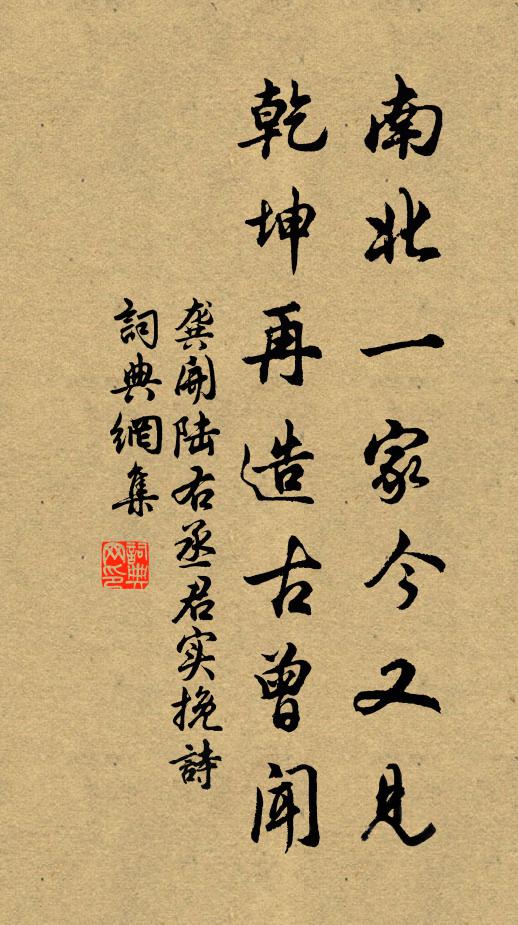 南北一家今又見
乾坤再造古曾聞
龚開陆右丞君实挽詩
詞典網集
詞典網印